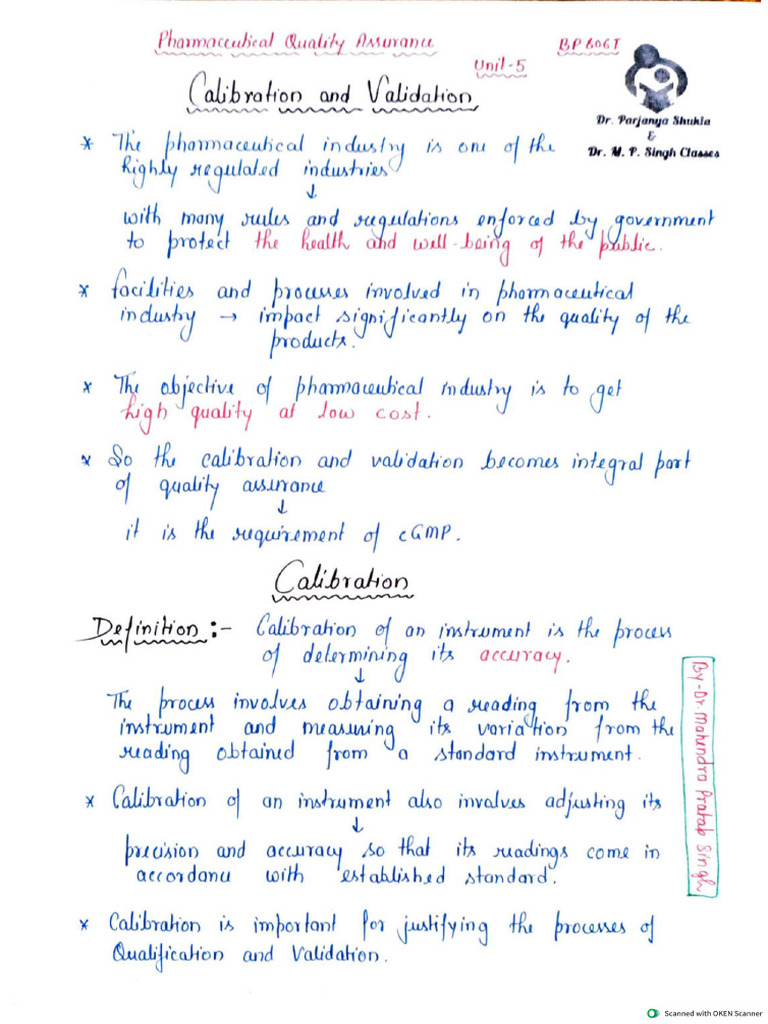 Pharmaceutical Quality Assurance BP606T
Unit-5
Calibration and Validation
Dr. Parjanya Shukla
&
Dr. M. P. Singh Classes
* The pharmaceutical industry is one of the
highly regulated industries
↓
with many rules and regulations enforced by government
to protect the health and well-being of the public.
* facilities and processes involved in pharmaceutical
industry → impact significantly on the quality of the
products.
* The objective of pharmaceutical industry is to get
high quality at low cost.
* So the calibration and validation becomes integral part
of quality assurance
↓
it is the requirement of cGMP.
Calibration
Definition :- Calibration of an instrument is the process
of determining its accuracy.
↓
The process involves obtaining a reading from the
instrument and measuring its variation from the
reading obtained from a standard instrument.
* Calibration of an instrument also involves adjusting its
↓
precision and accuracy so that its readings come in
accordance with established standard.
* Calibration is important for justifying the processes of
Qualification and Validation.
By-Dr. Mahendra Pratab Singh
Scanned with OKEN Scanner